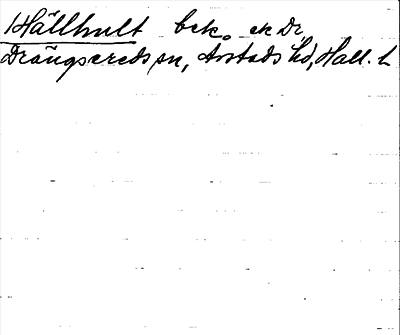 1 Hällhult bek. ek Dr
Drängsereds sn, Årstads hd, Hall. l.